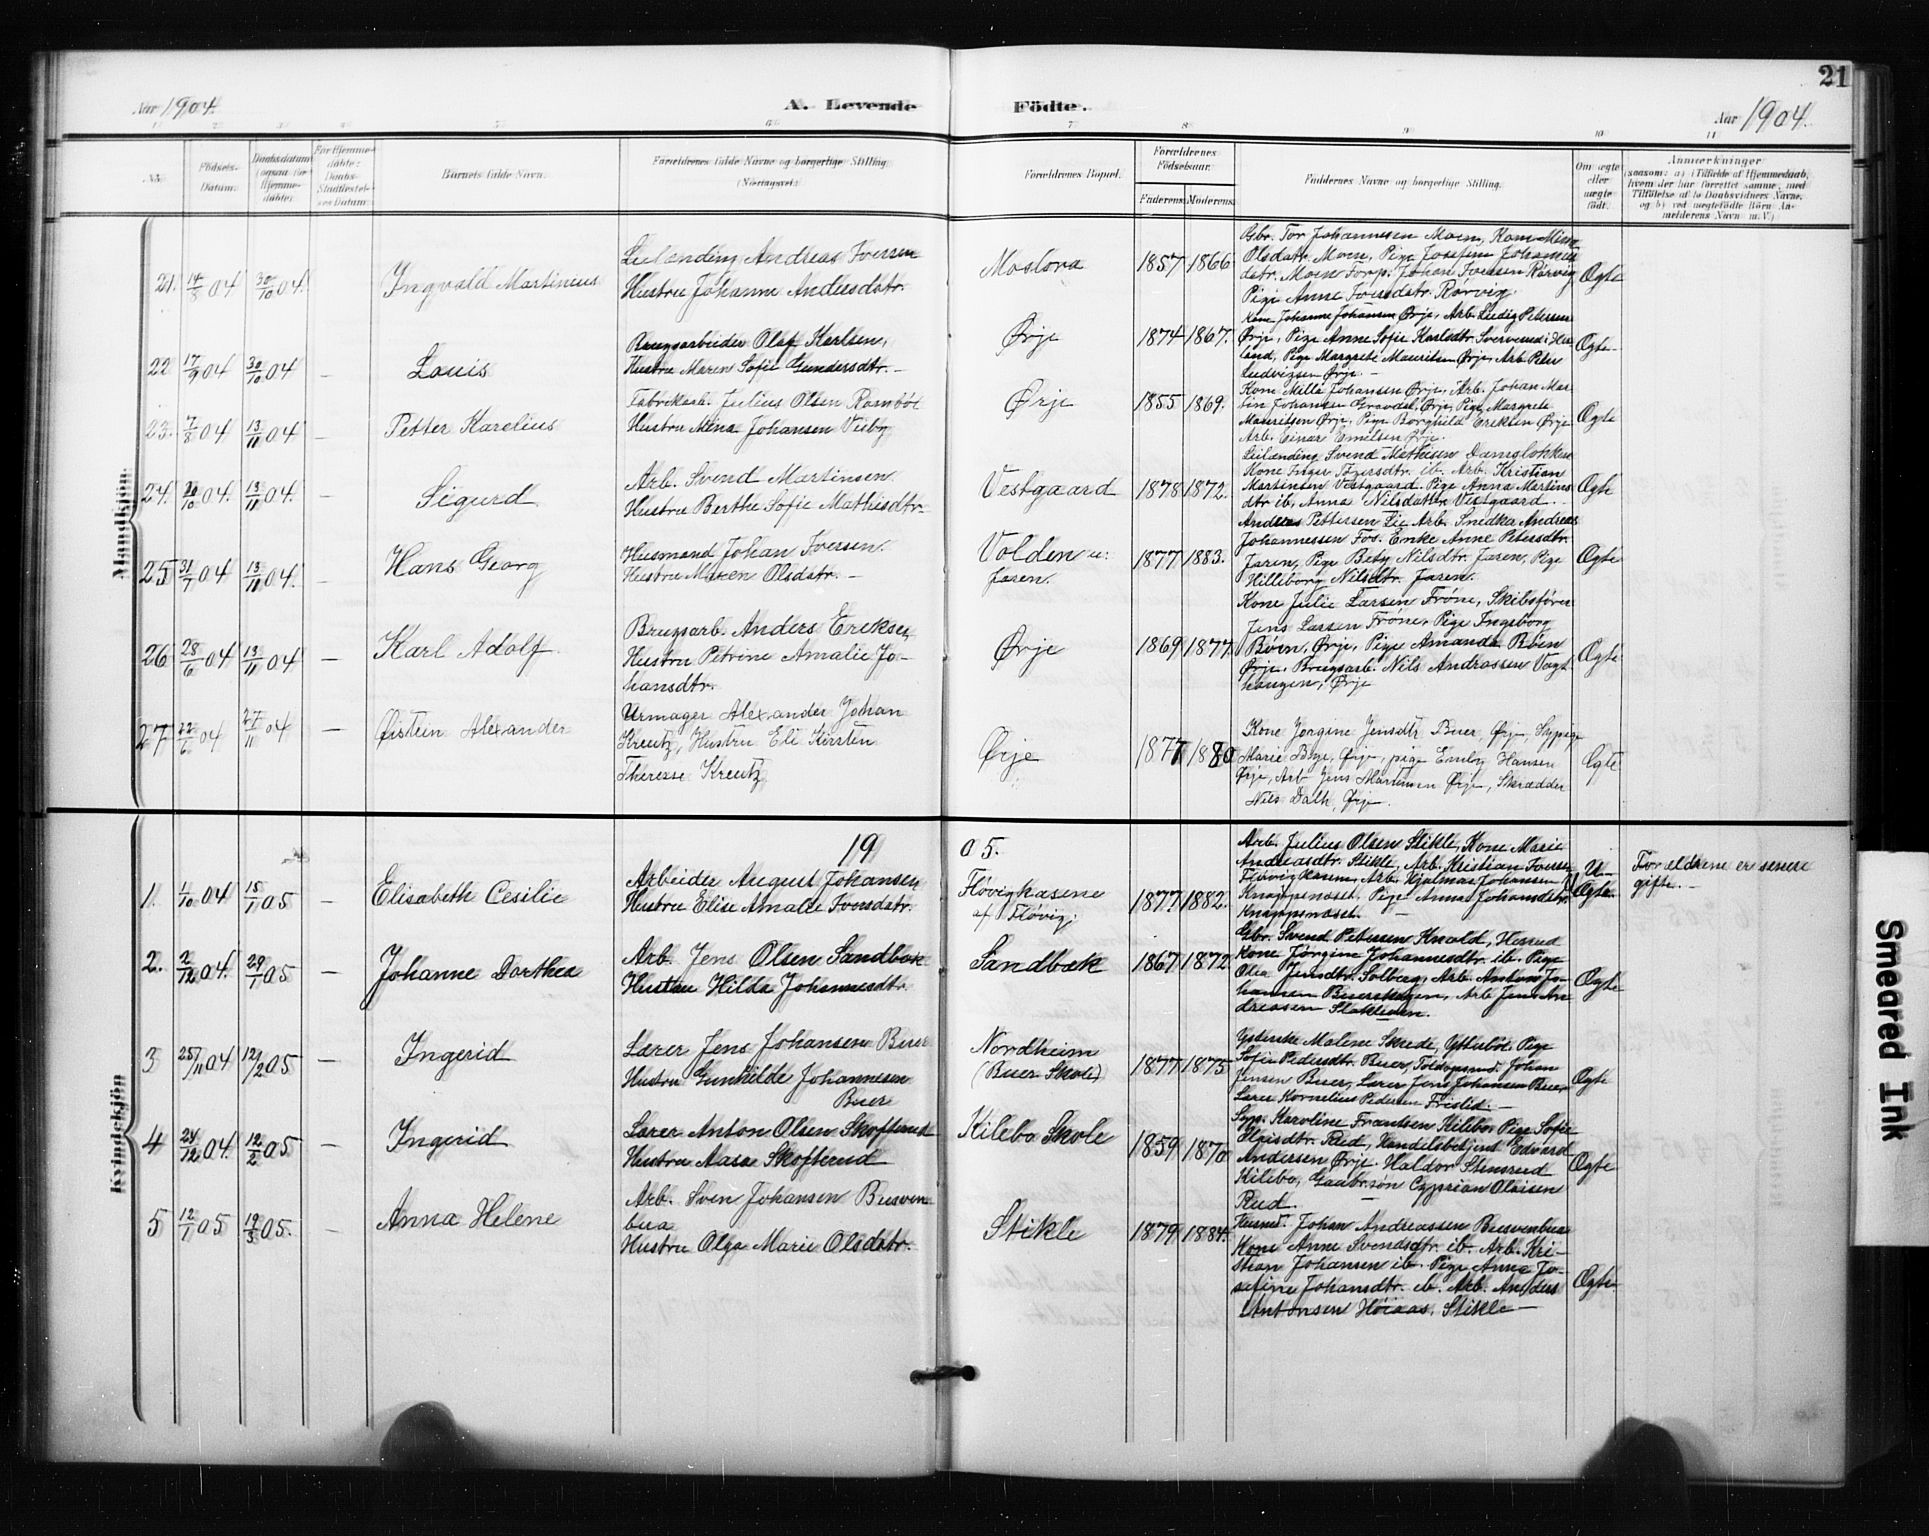 21
Aar 1904.
A. Levende Födte.
Aar 1904.
1 2 3 4 5 6 7 8 9 10 11
No.
Födsels-
Datum.
Daabsdatum
(ogsaa for
Hjemme-
døbte).
For Hjemme-
døbte:
Daabs-
Stadfæstel-
ses Datum.
Barnets fulde Navn.
Forældrenes fulde Navne og borgerlige Stilling
(Næringsvei).
Forældrenes Bopæl.
Forældrenes
Födselsaar.
Faderens. Moderens.
Faddernes Navne og borgerlige Stilling.
Om ægte
eller
uægte
født.
Anmærkninger
(saasom: a) i Tilfælde af Hjemmedaab,
hvem der har forrettet samme, med
Tilføielse af to Daabsvidners Navne,
og b) ved uægtefødte Börn An-
melderens Navn m. V.)
Mandkjön
21. 14/8 04 30/10 04.
Ingvald Martinius
Leilænding Andreas Iversen
Hustru Johanne Andersdatr.
Moslora
1857 1866
Gbr. Tor Johannesen Moen, Kone Mina
Olsdatr. Moen, Pige Josefine Johannes
datr. Moen Torp. Johan Iversen Rörvig
Pige Anne Iversdatr. Rörvig.
Ægte
22 17/9 04 30/10 04 –
Louis
Brugsarbeider Olaf Karlsen,
Hustru Maren Sofie Gundersdtr. –
Ørje
1874 1867.
Kone Johanne Johansen Ørje, Arb. Ludvig Petersen
Ørje, Pige Anne Sofie Karlsdtr. Svervend i Her-
land, Pige Margrete Mauritsen Ørje, Arb. Peter
Ludvigsen Ørje. –
Ægte
23. 7/8 04 13/11 04 –
Petter Karelius
Fabrikarb. Julius Olsen Rambøl
Hustru Alma Johansen Visby
Ørje
1855 1869.
Kone Milla Johansen Ørje, Arb. Johan Mar-
tin Johansen Gravdal, Ørje, Pige Margrete
Mauritsen Ørje, Pige Borghild Eriksen Ørje
Arb. Einar Emilsen Ørje.
Ægte
24. 20/10 04. 13/11 04. –
Sigurd
Arb. Svend Martinsen
Hustru Berthe Sofie Mathisdtr.
Vestgaard
1878 1872.
Leilænding Svend Mathisen Damglokken
Kone Inger Torersdtr. ib. Arb. Kristian
Martinsen Vestgaard. Pige Anna Martins
dtr ib, Anna Nilsdatter Vestgaard.
Ægte
25 31/7 04 13/11 04. –
Hans Georg
Husmand Johan Iversen.
Hustru Maren Olsdatr. –
Volden u:
Jaren.
1877 1883.
Andreas Pettersen Lie Arb. Smedka Andreas
Johannessen Fos. Enke Anne Petersdtr.
Jaren, Pige Betzy Nilsdtr. Jaren, Pige
Hilleborg Nilsdtr. Jaren.
Ægte
26 28/6 04 13/11 04 –
Karl Adolf
Brugsarb. Anders Eriksen
Hustru Petrine Amalie Jo-
hansdtr.
Ørje
1869 1877.
Kone Julie Larsen Frøne, Skibsfører
Jens Larsen Frøne, Pige Ingeborg
Bøen, Ørje, Pige Amanda Bøen
Ørje, Brugsarb. Nils Andreassen Vagt
haugen, Ørje
Ægte
27 22/6 04 27/11 04 –
Øistein Alexander
Urmager Alexander Johan
Kreutz, Hustru Eli Kirsten
Therese Kreutz
Ørje
1877 1880
Kone Jørgine Jensdtr Buer, Ørje, Sypige
Marie Bye, Ørje, pige Emily Hansen
Ørje, Arb Jens Martinsen Ørje, Skrædder
Nils Dalh, Ørje.
Ægte
Kvindekjön
19 05.
1. 1/10 04 15/1 05 –
Elisabeth Cesilie
Arbeider August Johansen
Hustru Elise Amalie Iversdatr.
Fløvigkasene
af Fløvig.
1877. 1882.
Arb. Julius Olsen Stikle, Kone Marie
Andreasdtr. Stikle, Arb. Kristian Iversen
Fløvigkasen, Arb. Hjalmar Johansen
Knappsnæset, Pige Anna Johansdtr.
Knappsnæset. –
U-
Ægte.
Forældrene er senere
gifte. –
2. 2/12 04. 29/1 05 –
Johanne Dorthea
Arb. Jens Olsen Sandbæk
Hustru Hilda Johannesdtr.
Sandbæk
1867 1872
Gbr. Svend Petersen Knold, Hesrud
Kone Jørgine Johannesdtr. ib. Pige
Olia Jensdtr. Solberg, Arb. Anton Jo-
hansen Buerskogen, Arb Jens An-
dreasen Slokleven.
Ægte
3 25/11 04 12/2 05 –
Ingerid
Lærer Jens Johansen Buer
Hustru Gunhilde Johannesen
Buer
Nordheim
(Buer Skole)
1877 1875
Gjdenke Malene Skrede, Ytterbøl Pige
Sofie Pedersdtr. Buer, Toldopsmd. Johan
Jensen Buer, Lærer Jens Johansen Buer,
Lærer Kornelius Pedersen Frislid. –
Ægte
4 24/12 04. 12/2 05 –
Ingerid
Lærer Anton Olsen Skofterud
Hustru Aasa Skofterud
Kilebo Skole
1859 1870
Syp. Karoline Frantsen Kilebo, Pige Sofie
Olaisdtr. Rud, Handelsbetjent Edvard
Andersen Ørje. Haldor Stensrud
Kilebo, Gaardbr.søn Cyprian Olaisen
Rud. –
Ægte
5 12/1 05 19/3 05. –
Anna Helene
Arb. Sven Johansen Busven
bua
Hustru Olga Marie Olsdatr.
Stikle
1879 1884.
Husmd. Johan Andreassen Busvenbua
Kone Anne Svendsdtr. ib. Arb. Kri-
stian Johansen ib. Pige Anna Jo-
sefine Johansdtr. ib. Arb. Anders
Antonsen Høiaas, Stikle –
Ægte.
Smeared Ink